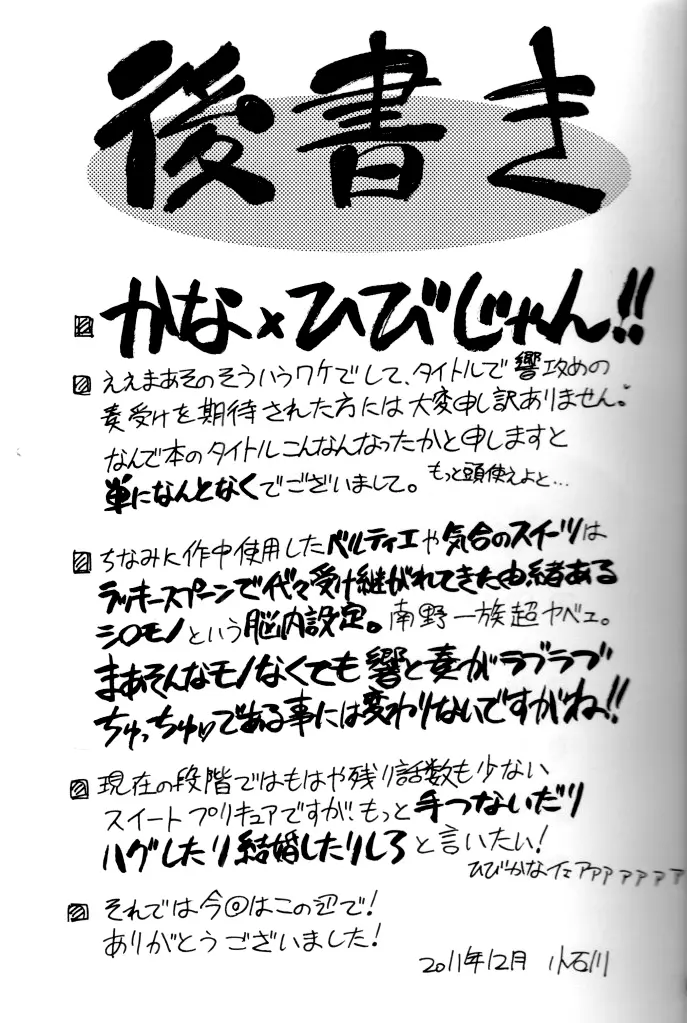 後書き
かな×ひびじゃん!!
ええまあそのそういうワケでして、タイトルで響攻めの
奏受けを期待された方には大変申し訳ありません。
なんで本のタイトルこんなんなったかと申しますと
単になんとなくでございまして。もっと頭使えよと…
ちなみに作中使用したベルティエや気合のスイーツは
ラッキースプーンで代々受け継がれてきた由緒ある
シロモノという脳内設定。南野一族超ヤベェ。
まあそんなモノなくても響と奏がラブラブ
ちゅっちゅである事には変わりないですがね!!
現在の段階ではもはや残り話数も少ない
スイートプリキュアですが、もっと手つないだり
ハグしたり結婚したりしろと言いたい!
ひびかなイェアァァァァァァ
それでは今回はこの辺で!
ありがとうございました!
2011年12月 小石川